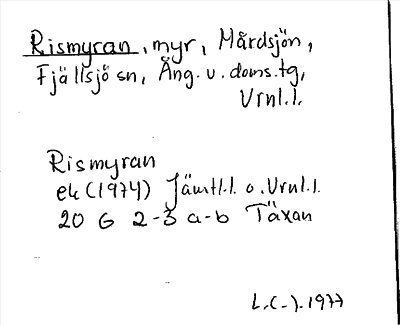 Rismyran, myr, Mårdsjön,
Fjällsjö sn, Ång. v. doms.tg,
Vrnl.l.
Rismyran
ek (1974) Jämtl.l. o. Vrnl.l.
20 G 2-3 a-b Täxan
L.(-).1977